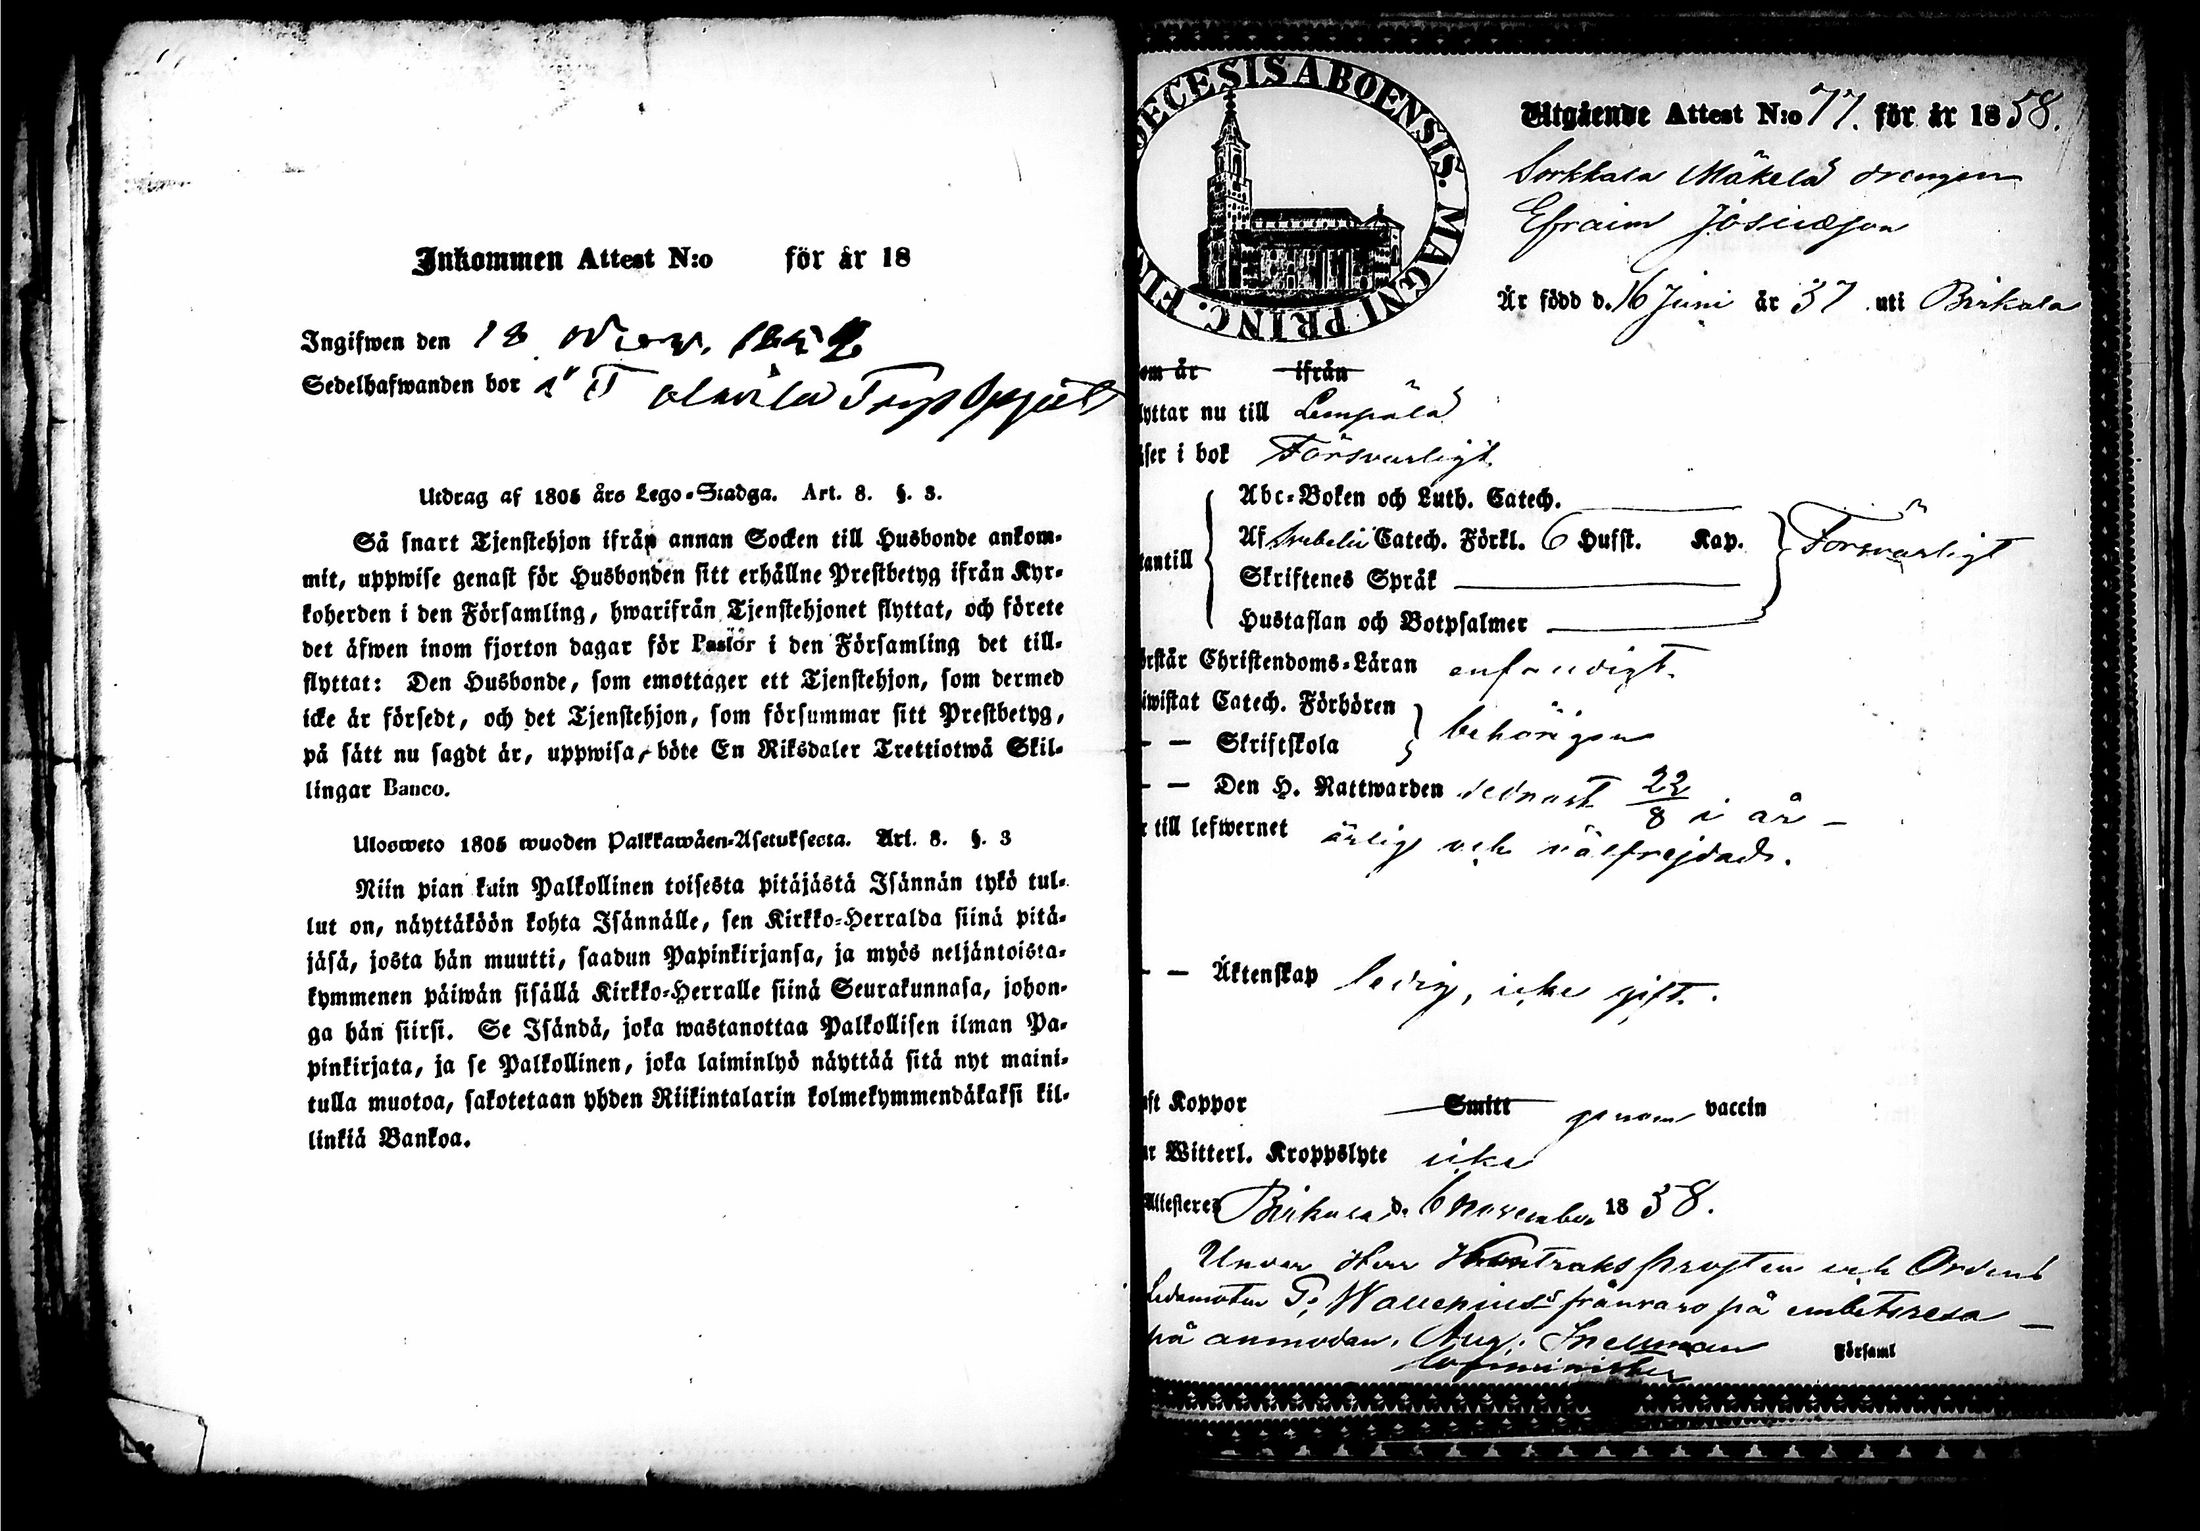 Inkommen Attest N:o för år 18
Ingifwen den 18 Nov. 185
Sedelhafwanden bor i
Utdrag af 1805 års Lego-Stadga. Art. 8. §. 3.
Så snart Tjenstehjon ifrån annan Socken till Husbonde ankom-
mit, uppwise genast för Husbonden sitt erhållne Prestbetyg ifrån Kyr-
koherden i den Församling, hwarifrån Tjenstehjonet flyttat, och förete
det äfwen inom fjorton dagar för Pastor i den Församling det till-
flyttat: Den Husbonde, som emottager ett Tjenstehjon, som dermed
icke är försedt, och det Tjenstehjon, som försummar sitt Prestbetyg,
på sätt nu sagdt är, uppwisa, böte En Riksdaler Trettiotwå Skil-
lingar Banco.
Ulosweto 1805 wuoden Palkkawäen-Asetuksesta. Art. 8. §. 3
Niin pian kuin Palkollinen toisesta pitäjästä Isännän tykö tul-
lut on, näyttäköön kohta Isännälle, sen Kirkko-Herralda siinä pitä-
jäsä, josta hän muutti, saadun Papinkirjansa, ja myös neljäntoista-
kymmenen päiwän sisällä Kirkko-Herralle siinä Seurakunnasa, johon-
ga hän siirsi. Se Isändä, joka wastanottaa Palkollisen ilman Pa-
pinkirjata, ja se Palkollinen, joka laiminlyö näyttää sitä nyt maini-
tulla muotoa, sakotetaan yhden Riikintalarin kolmekymmendäkaksi kil-
linkiä Bankoa.
DECESIS ABOENSIS. MAGNI PRINC. FIN
Utgående Attest N:o 77. för år 1858.
Sorkkala Mäkelä drengen
Efraim Josuæson
Är född d. 16 Juni år 37 uti Birkala
om år ifrån
lyttar nu till Lempälä
äser i bok Försvarligt
Abc-Boken och Luth. Catech.
Af Svebelii Catech. Förkl. 6 Hufst. Kap. Försvarligt
tantill
Skriftenes Språk
Hustaflan och Botpsalmer
örstår Christendoms-Läran enfaldigt
iwistat Catech. Förhören
behörigen
— — Skriftskola
— — Den H. Nattwarden sednast 22/8 i år —
r till lefwernet ärlig och välfrejdad.
— — Äktenskap ledig, icke gift.
ft Koppor Smitt genom vaccin
ar Witterl. Kroppslyte icke
Attesteres Birkala d. 6 november 1858.
Under Herr Kontraktsprosten och Ordens
Ledamoten G. Wallenius's frånvaro på embetsresa —
på anmodan, Aug. Snellman
Comminister
Församl